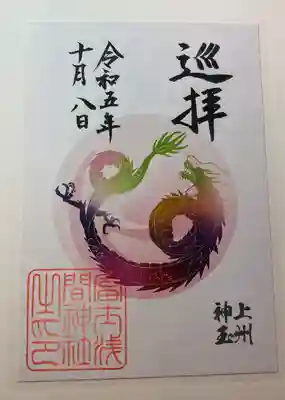 巡拝
令和五年
十月八日
上州
神玉
富士浅
間神社
之印